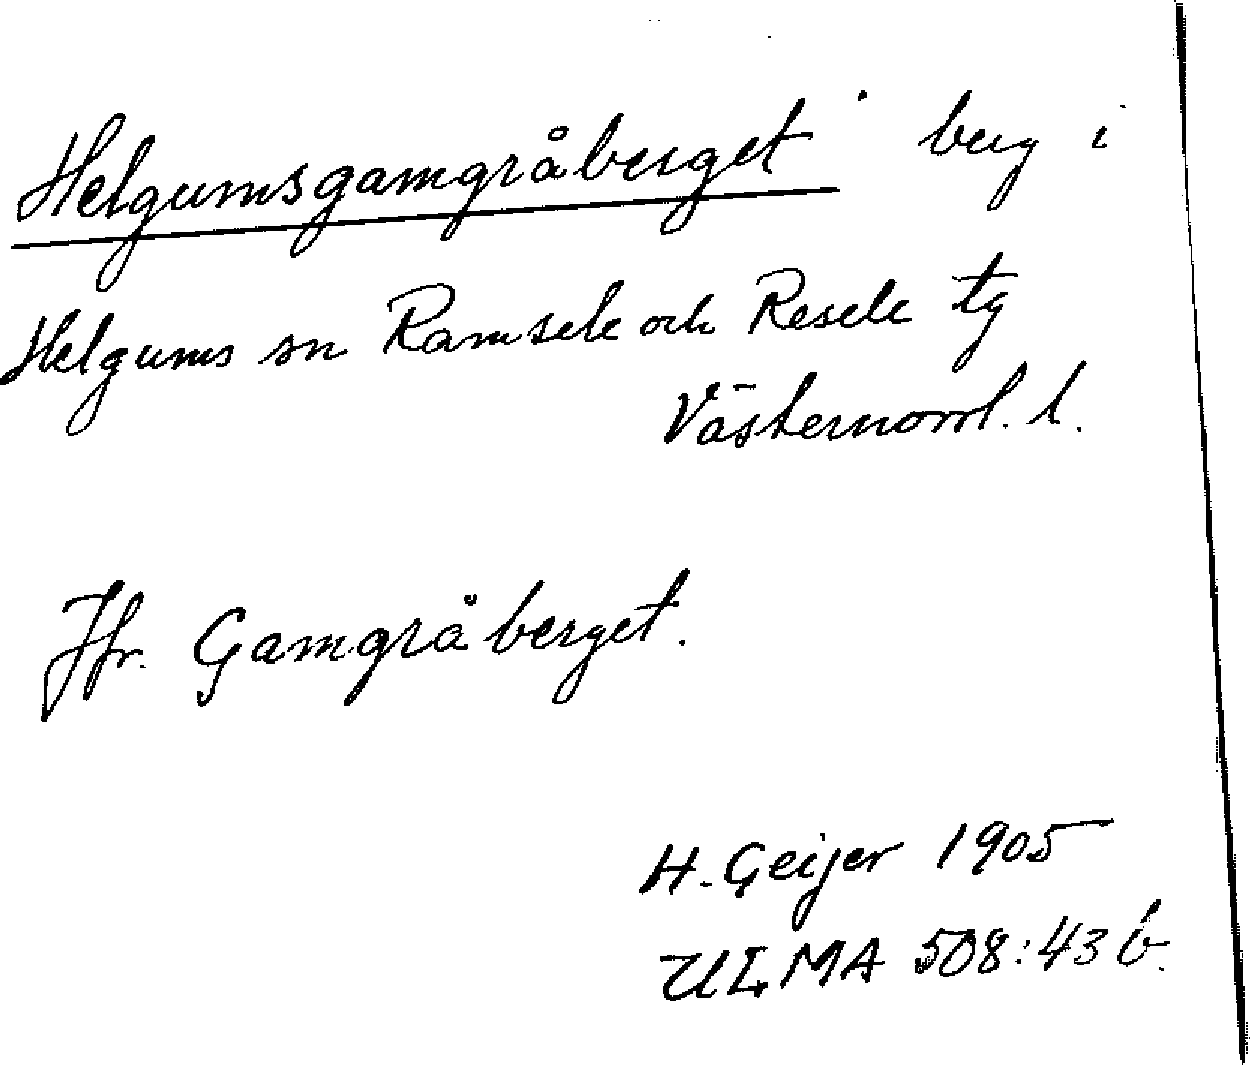 Helgumsgamgråberget berg i
Helgums sn Ramsele och Resele tg
Västernorrl. l.
Jfr. Gamgråberget.
H. Geijer 1905
ULMA 508:43 b.